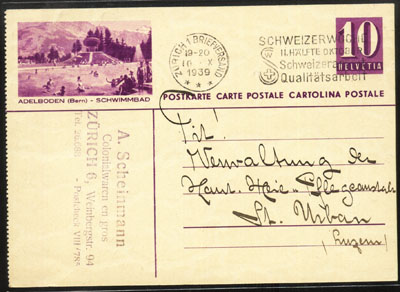 ADELBODEN (Bern) - SCHWIMMBAD
ZÜRICH 1 BRIEFVERSAND
19-20
10. X
1939
SCHWEIZERWOCHE
II. HÄLFTE OKTOBER
Schweizerart
Qualitätsarbeit
10
HELVETIA
POSTKARTE CARTE POSTALE CARTOLINA POSTALE
A. Scheinmann
Colonialwaren en gros
ZÜRICH 6, Weinbergstr. 94
Tit.
Verwaltung der
Kant. Heil-Pflegeanstalt
St. Urban
(Luzern)